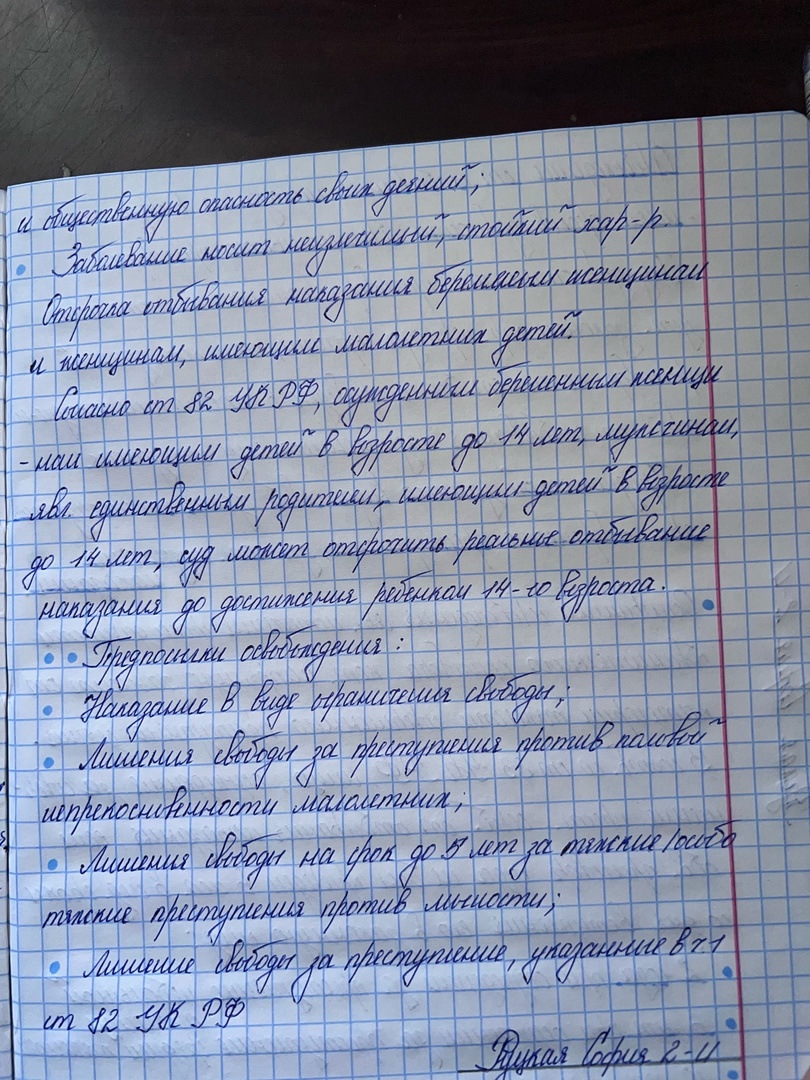 и общественную опасность своих деяний;
• Заболевание носит неизлечимый, стойкий хар-р.
Отсрочка отбывания наказания беременным женщинам
и женщинам, имеющим малолетних детей.
Согласно ст 82 УК РФ, осужденным беременным женщи
-нам имеющим детей в возросте до 14 лет, мужчинам,
явл. единственным родителем, имеющим детей в возросте
до 14 лет, суд может отсрочить реальное отбывание
наказания до достижения ребенком 14-го возроста.
• • Предпосылки освобождения :
• Наказание в виде ограничения свободы;
• Лишения свободы за преступления против половой
неприкосновенности малолетних;
• Лишения свободы на срок до 5 лет за тяжские/особо
тяжские преступления против личности;
• Лишение свободы за преступление, указанные в ч.1
ст 82 УК РФ
Руцкая София 2-11